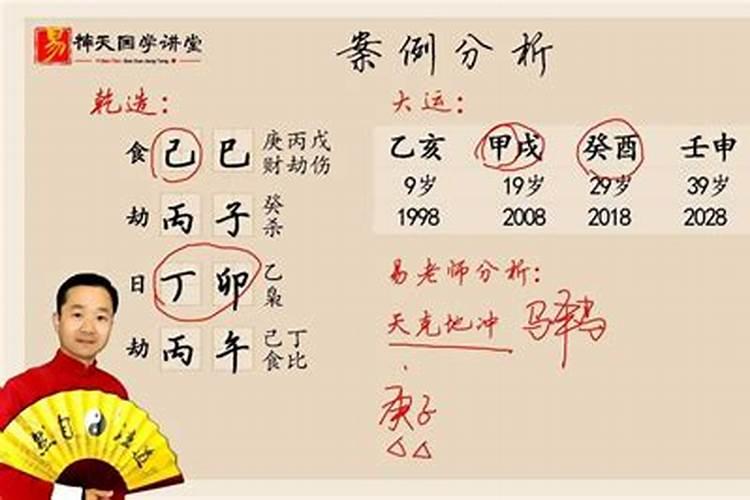 易 神天国学讲堂
案例分析
乾造：
食 己 巳 庚丙戊
财劫伤
劫 丙 子 癸
杀
日 丁 卯 乙
枭
劫 丙 午 己丁
食比
大运：
乙亥 甲戌 癸酉 壬申
9岁 19岁 29岁 39岁
1998 2008 2018 2028
易老师分析：
天克地冲
庚子